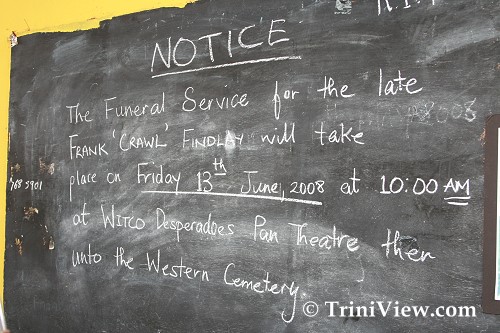 NOTICE
The Funeral Service for the late
FRANK 'CRAWL' FINDLAY will take
place on Friday 13th June, 2008 at 10:00 AM
at WITCO Desperadoes Pan Theatre then
unto the Western Cemetery.
© TriniView.com